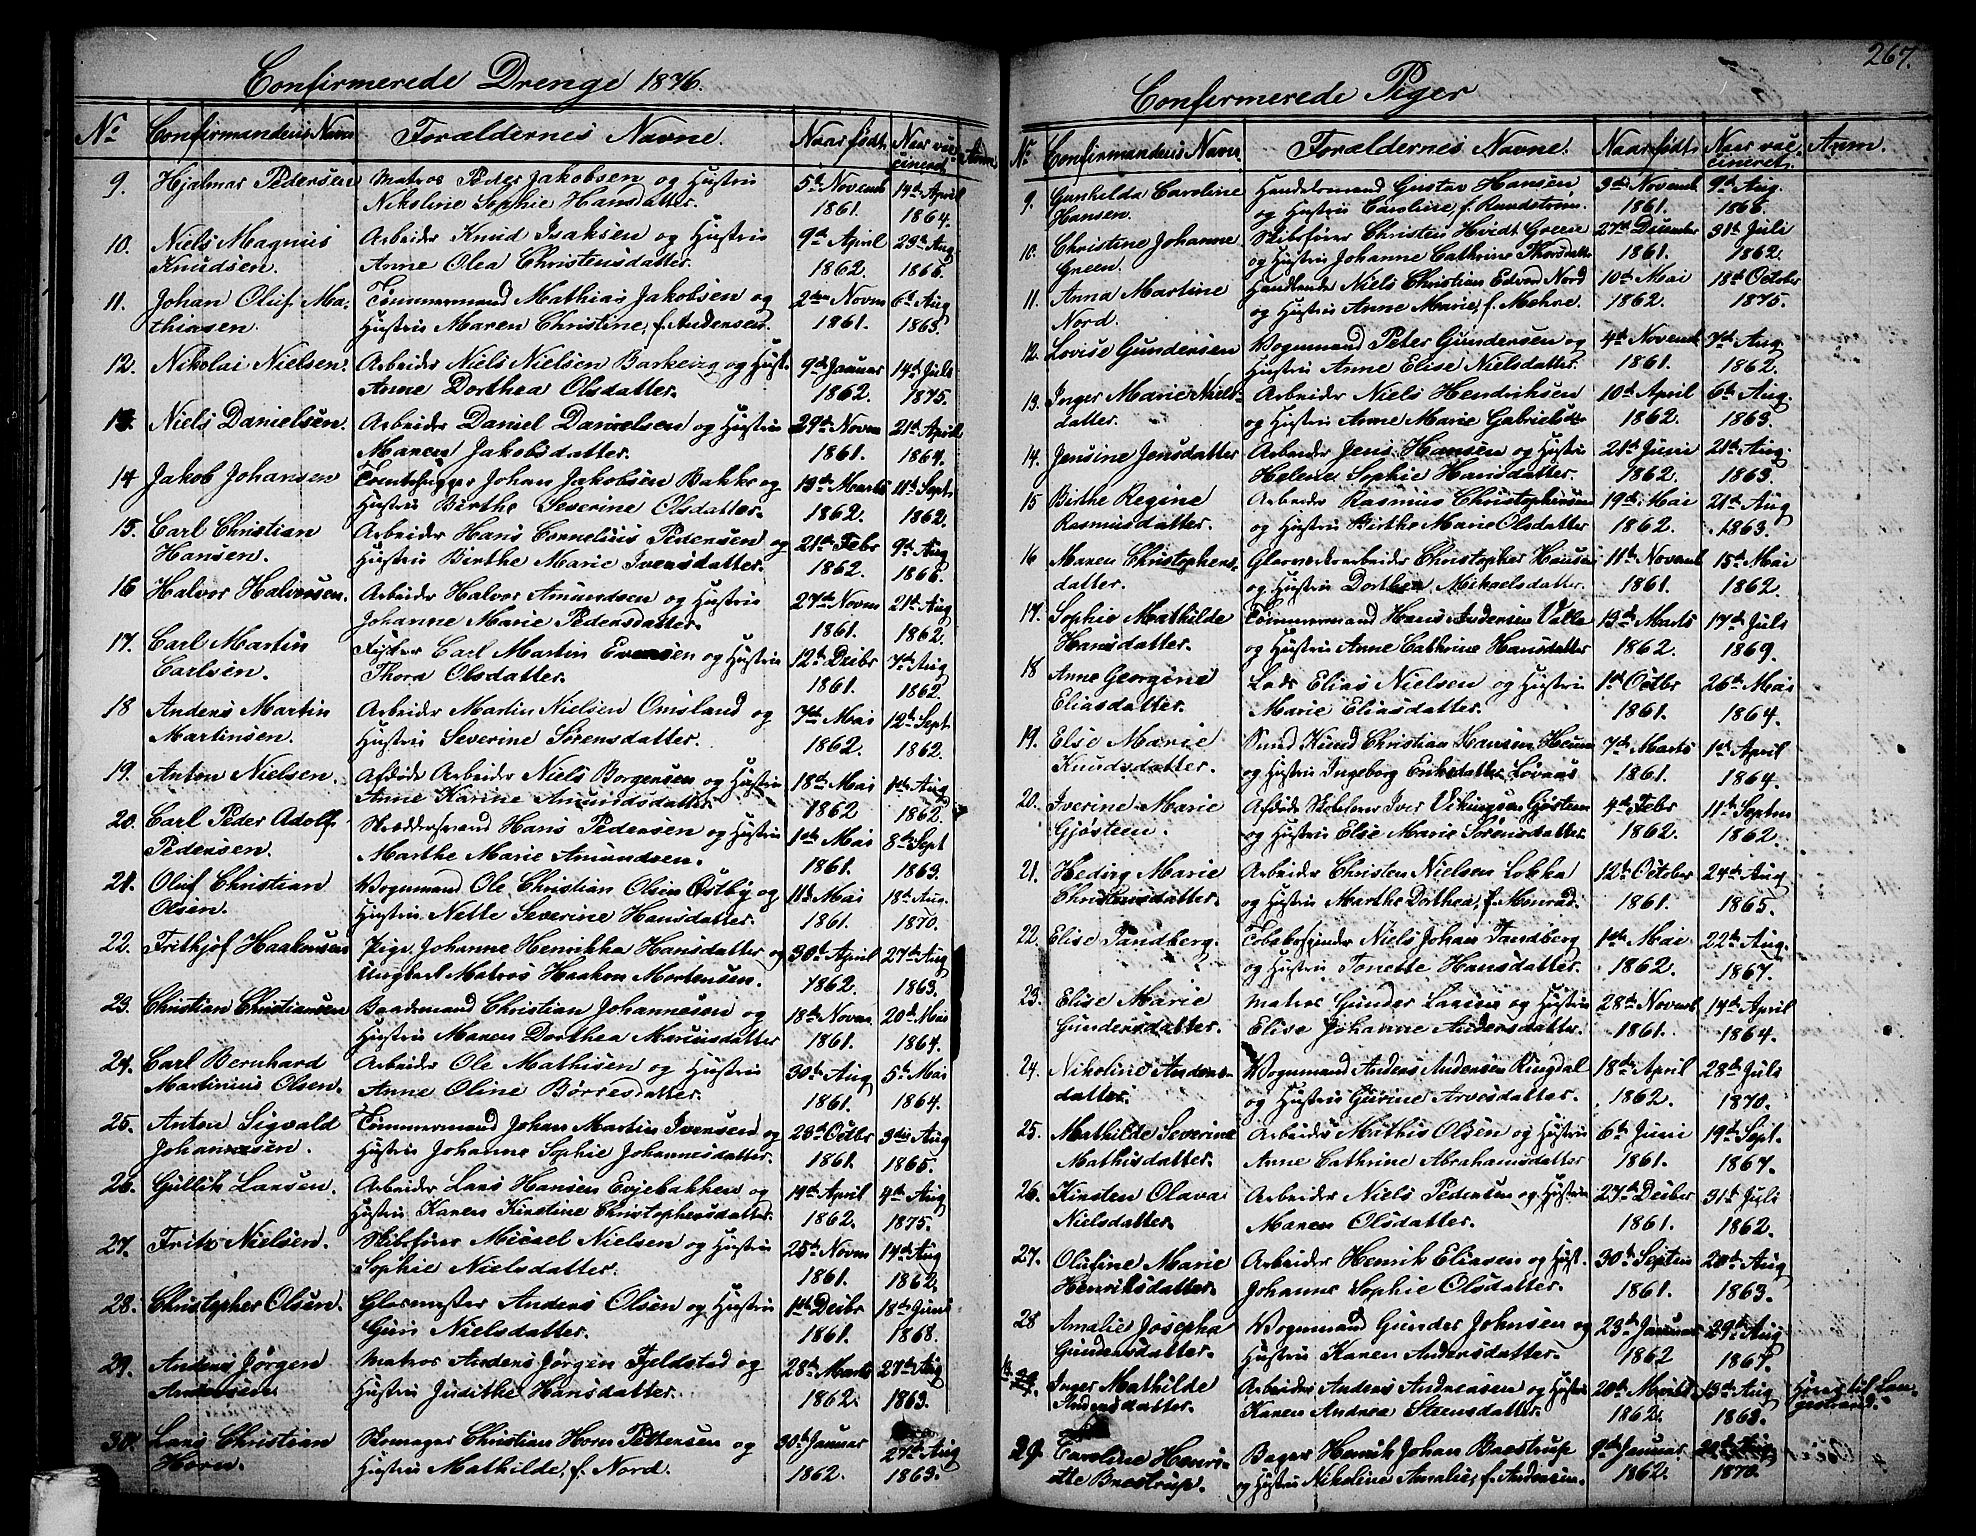 267.
Confirmerede Drenge 1876.
No Confirmandens Navn Forældernes Navne. Naar født. Naar vac- Anm
cineret
9. Hjalmar Pedersen Matros Peder Jakobsen og Hustru 5te Novemb 14de April
Nikoline Sophie Hansdatter. 1861. 1864.
10. Niels Magnus Arbeider Knud Isaksen og Hustru 9de April 29de Aug
Knudsen. Anne Olea Christensdatter. 1862. 1866.
11. Johan Oluf Ma- Tømmermand Mathias Jakobsen og 2den Novm 6te Aug
thiasen. Hustru Maren Christine, f. Andersen. 1861. 1863.
12. Nikolai Nielsen. Arbeider Niels Nielsen Barkevig og Hust. 9de Januar 14de Juli
Anne Dorthea Olsdatter. 1862. 1875.
13. Niels Danielsen. Arbeider Daniel Danielsen og Hustru 29de Novm 21de April
Maren Jakobsdatter. 1861. 1864.
14 Jakob Johansen Johan Jakobsen Bakke og 13de Marts 11te Sept.
Hustru Birthe Severine Olsdatter. 1862. 1862.
15. Carl Christian Arbeider Hans Cornelius Pedersen og 21de Febr 9de Aug
Hansen. Hustru Birthe Marie Iversdatter. 1862. 1866.
16 Halvor Halvorsen. Arbeider Halvor Amundsen og Hustru 27de Novm 21de Aug
Johanne Marie Pedersdatter. 1861. 1862.
17. Carl Martin Fisker Carl Martin Evensen og Hustru 12te Decbr 7de Aug
Carlsen. Thora Olsdatter. 1861. 1862
18 Anders Martin Arbeider Martin Nielsen Omsland og 7de Mai 12te Sept
Martinsen. Hustru Severine Sørensdatter. 1862. 1862.
19. Anton Nielsen. Afdøde Arbeider Niels Borgersen og Hustru 18de Mai 1ste Aug
Anne Karine Amundsdatter. 1862 1862.
20. Carl Peder Adolf Skræddersvend Hans Pedersen og Hustru 1ste Mai 8de Sept
Pedersen. Marthe Marie Amundsen. 1861. 1863.
21. Oluf Christian Vognmand Ole Christian Olsen Østby og 11te Mai 18de Aug.
Olsen. Hustru Nette Severine Hansdatter. 1861. 1870.
22. Frithjof Haakensen Pige Johanne Henrikka Hansdatter og 30de April 27de Aug
Ungkarl Matros Haakon Mortensen. 1862. 1863.
23. Christian Christiansen Baadsmand Christian Johannesen og 18de Novm 20de Mai
Hustru Maren Dorthea Mariusdatter 1861. 1864.
24. Carl Bernhard Arbeider Ole Mathisen og Hustru 30te Aug 5te Mai
Martinius Olsen. Anne Oline Børresdatter. 1861. 1864.
25. Anton Sigvald Tømmermand Johan Martin Iversen og 23de Octbr 3die Aug
Johannesen. Hustru Johanne Sophie Johannesdatter. 1861. 1865.
26. Gullik Larsen. Arbeider Lars Hansen Evjebakken og 14de April 4de Aug
Hustru Karen Kirstine Christophersdatter. 1862. 1875.
27. Fritz Nielsen. Skibsfører Micael Nielsen og Hustru 25de Novm 14de Aug
Sophie Nielsdatter. 1861. 1862.
28. Christopher Olsen. Glasmester Anders Olsen og Hustru 1ste Decbr 18de Juni
Guri Nielsdatter. 1861. 1868.
29. Anders Jørgen Matros Anders Jørgen Fjeldstad og 28de Marts 27de Aug
Andersen Hustru Judithe Hansdatter. 1862. 1863.
30. Lars Christian Skomager Christian Horn Pettersen og 30te Januar 27de Aug
Horn. Hustru Mathilde, f. Nord. 1862. 1863.
Confirmerede Piger
No Confirmandens Navn Forældernes Navne. Naar født. Naar vac- Anm.
cineret.
9. Gunhilda Caroline Handelsmand Gustav Hansen 3die Novemb 9de Aug.
Hansen. og Hustru Caroline, f. Rundstrøm. 1861. 1866.
10. Christine Johanne Skibsfører Christen Hvidt Green 27de December 31te Juli
Green. og Hustru Johanne Cathrine Thorsdatter 1861. 1862.
11. Anna Martine Handlende Niels Christian Edvon Nord 10de Mai 18de October
Nord. og Hustru Anne Marie, f. Mohre. 1862. 1875.
12. Lovise Gundersen Vognmand Peter Gundersen og 4de Novemb 7de Aug
Hustru Anne Elise Nielsdatter. 1861. 1862.
13. Inger Marie Niels- Arbeider Niels Hendriksen 10de April 6te Aug.
datter. og Hustru Anne Marie Gabrielsdtr 1862. 1863.
14. Jensine Jensdatter Arbeider Jens Hansen og Hustru 21de Juni 21de Aug
Helene Sophie Hansdatter. 1862. 1863.
15 Birthe Regine Arbeider Rasmus Christophersen 19de Mai 21de Aug
Rasmusdatter. og Hustru Birthe Marie Olsdatter 1862. 1863.
16 Maren Christophers- Glasværksarbeider Christopher Hansen 11te Novemb 15de Mai
datter. og Hustru Dorthea Mikaelsdatter. 1861. 1862.
17. Sophie Mathilde Tømmermand Hans Andersen Valle 13de Marts 17de Juli
Hansdatter. og Hustru Anne Cathrine Hansdatter 1862. 1869.
18 Anne Georgine Lods Elias Nielsen og Hustru 1ste Octbr 26de Mai
Eliasdatter. Marie Eliasdatter. 1861. 1864.
19. Else Marie Smed Knud Christian Hansen Heum 7de Marts 1ste April
Knudsdatter. og Hustru Ingeborg Eriksdatter Lovaas 1861. 1864.
20. Iverine Marie Afdøde Skibsfører Iver Vikingsen Gjøstein 4de Febr 11te Septem
Gjøstein. og Hustru Else Marie Sørensdatter. 1862. 1862.
21. Hedvig Marie Arbeider Christen Nielsen Lokka 12te October 24de Aug
Christensdatter. og Hustru Marthe Dorthea, f. Monrad. 1861. 1865.
22. Elise Tandberg. Tobaksspinder Niels Johan Tandberg 1ste Mai 22de Aug.
og Hustru Tonette Hansdatter. 1862. 1867.
23. Elise Marie Matros Gunder Larsen og Hustru 28de Novemb 14de April
Gundersdatter. Elise Johanne Andersdatter. 1861. 1864.
24. Nikoline Anders- Vognmand Anders Andersen Ringdal 18de April 28de Juli
datter. og Hustru Gurine Arvesdatter. 1862. 1870.
25. Mathilde Severine Arbeider Mathis Olsen og Hustru 6te Juni 19de Sept.
Mathisdatter. Anne Cathrine Abrahamsdatter 1861. 1867.
26. Kirsten Olava Arbeider Niels Pedersen og Hustru 27de Decber 31te Juli
Nielsdatter. Maren Olsdatter. 1861. 1862.
27. Olufine Marie Arbeider Henrik Eliasen og Hust. 30te Septem 20de Aug
Henriksdatter. Johanne Sophie Olsdatter. 1861. 1863.
28 Amalie Josepha Vognmand Gunder Johnsen og 23de Januar 29de Aug
Gundersdatter. Hustru Karen Andersdatter. 1862 1867.
Inger Mathilde Arbeider Anders Andreasen og Hustru 20de 13de Aug til Lan-
Andersdatter. Karen Andrea Steensdatter. 1862. 1863. gestrand.
29. Caroline Henri- Bager Henrik Johan Baestrup 9de Januar
ette Baestrup. og Hustru Nikoline Amalie, f. Andersen. 1862. 1870.